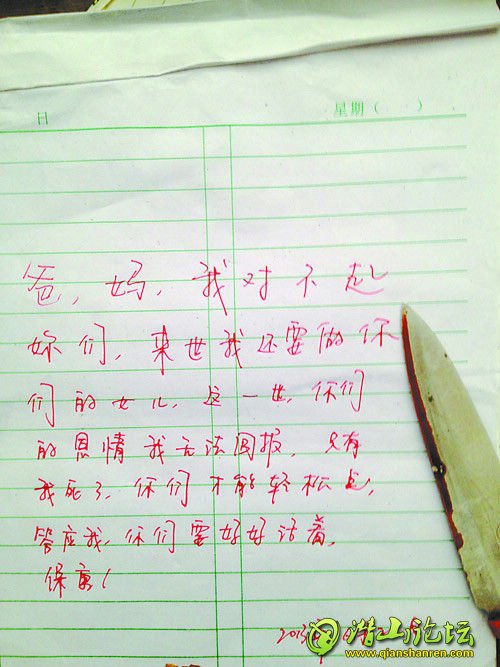 日 星期( )
爸,妈,我对不起
妳们,来世我还要做你
们的女儿,这一世,你们
的恩情我无法回报,只有
我死了,你们才能轻松点,
答应我,你们要好好活着,
保重!
2013年
潜山论坛
www.qianshanren.com